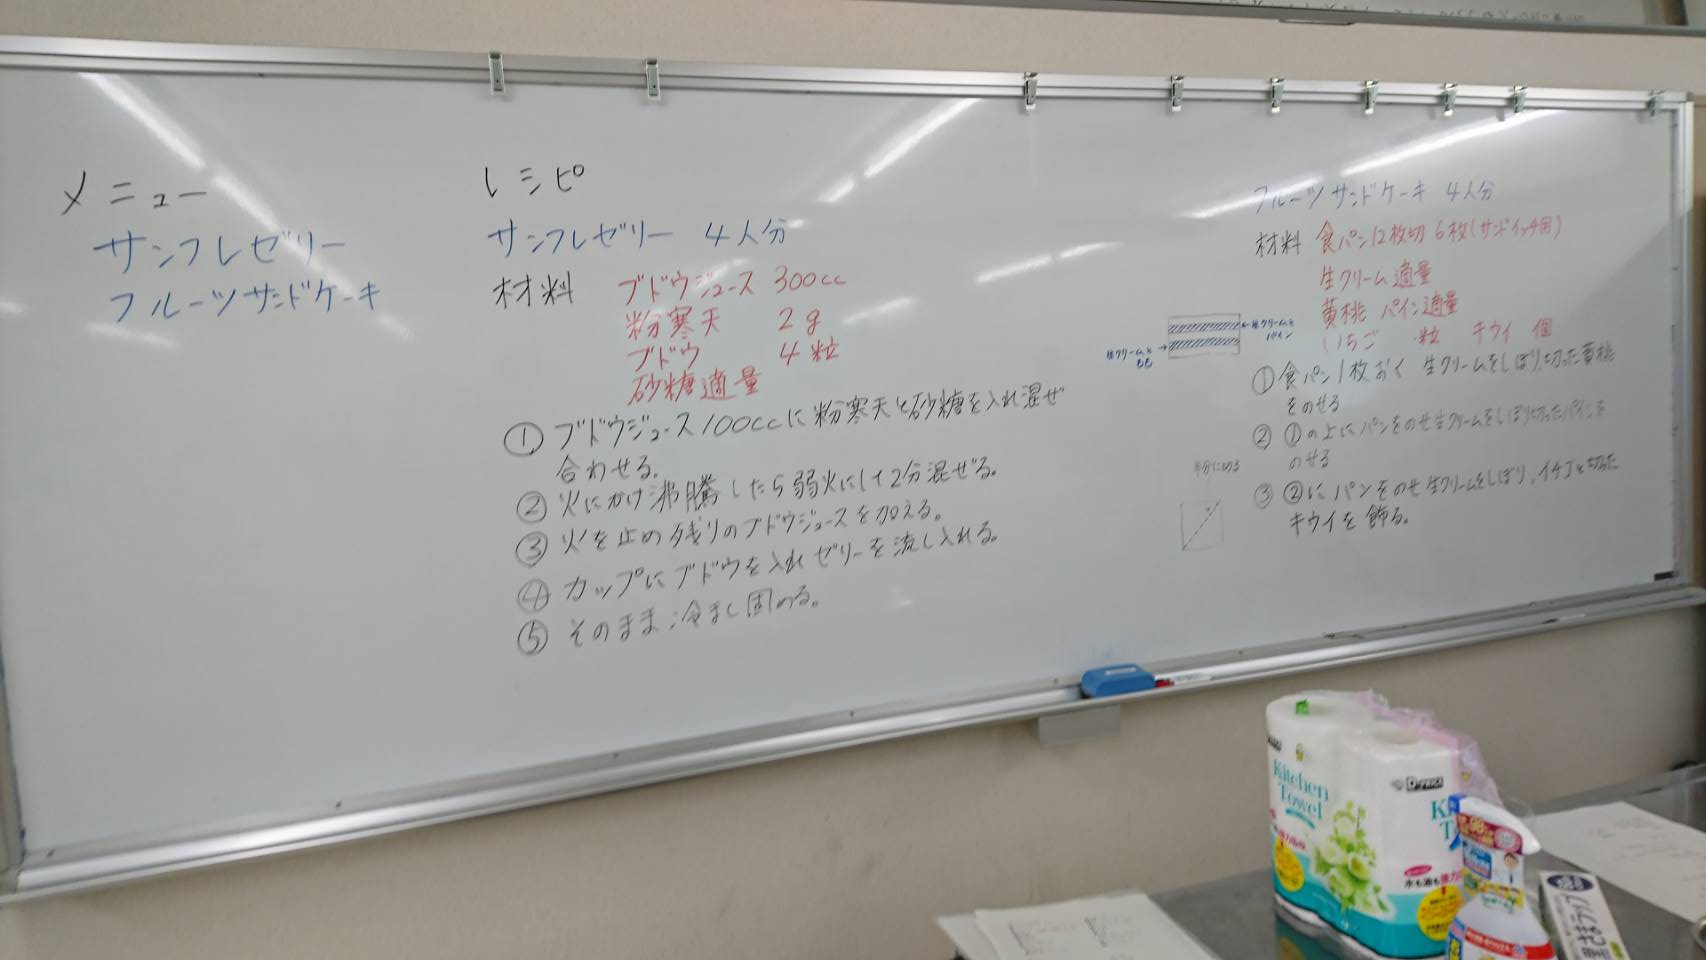 メニュー
サンフレゼリー
フルーツサンドケーキ
レシピ
サンフレゼリー 4人分
材料 ブドウジュース 300cc
粉寒天 2g
ブドウ 4粒
砂糖適量
① ブドウジュース100ccに粉寒天と砂糖を入れ混ぜ
合わせる。
② 火にかけ沸騰したら弱火にして2分混ぜる。
③ 火を止め残りのブドウジュースを加える。
④ カップにブドウを入れゼリーを流し入れる。
⑤ そのまま冷まし固める。
フルーツサンドケーキ 4人分
材料 食パン12枚切 6枚(サンドイッチ用)
生クリーム適量
黄桃 パイン適量
いちご 粒 キウイ 個
←生クリームと
パイン
生クリームと→
もも
① 食パン1枚おく 生クリームをしぼり、切った黄桃
をのせる
② ①の上にパンをのせ生クリームをしぼり切ったパインを
のせる
③ ②にパンをのせ生クリームをしぼり、イチゴと切った
キウイを飾る。
半分に切る
Kitchen
Towel
D-PRICE